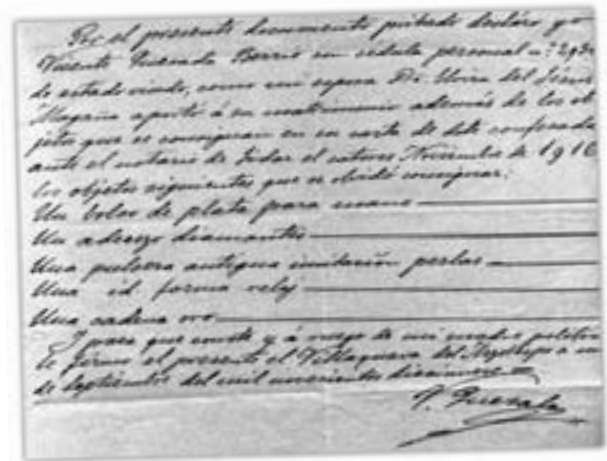 Por el presente documento privado declaro yo
Vicente Quesada Berrio con cédula personal nº
de estado viudo, como mi esposa Dª Elvira del Jesús
Magaña aportó á su matrimonio además de los ob
jetos que se consignan en su carta de dote confesada
ante el notario de Jódar el catorce Noviembre de 1910
los objetos siguientes que se olvidó consignar:
Un bolso de plata para mano
Un aderezo diamantes
Una pulsera antigua imitación perlas
Una id forma reloj
Una cadena oro
Y para que conste y á ruego de mi madre política
lo firmo el presente el Villanueva del Arzobispo a
de Septiembre del mil novecientos diecinueve
V. Quesada